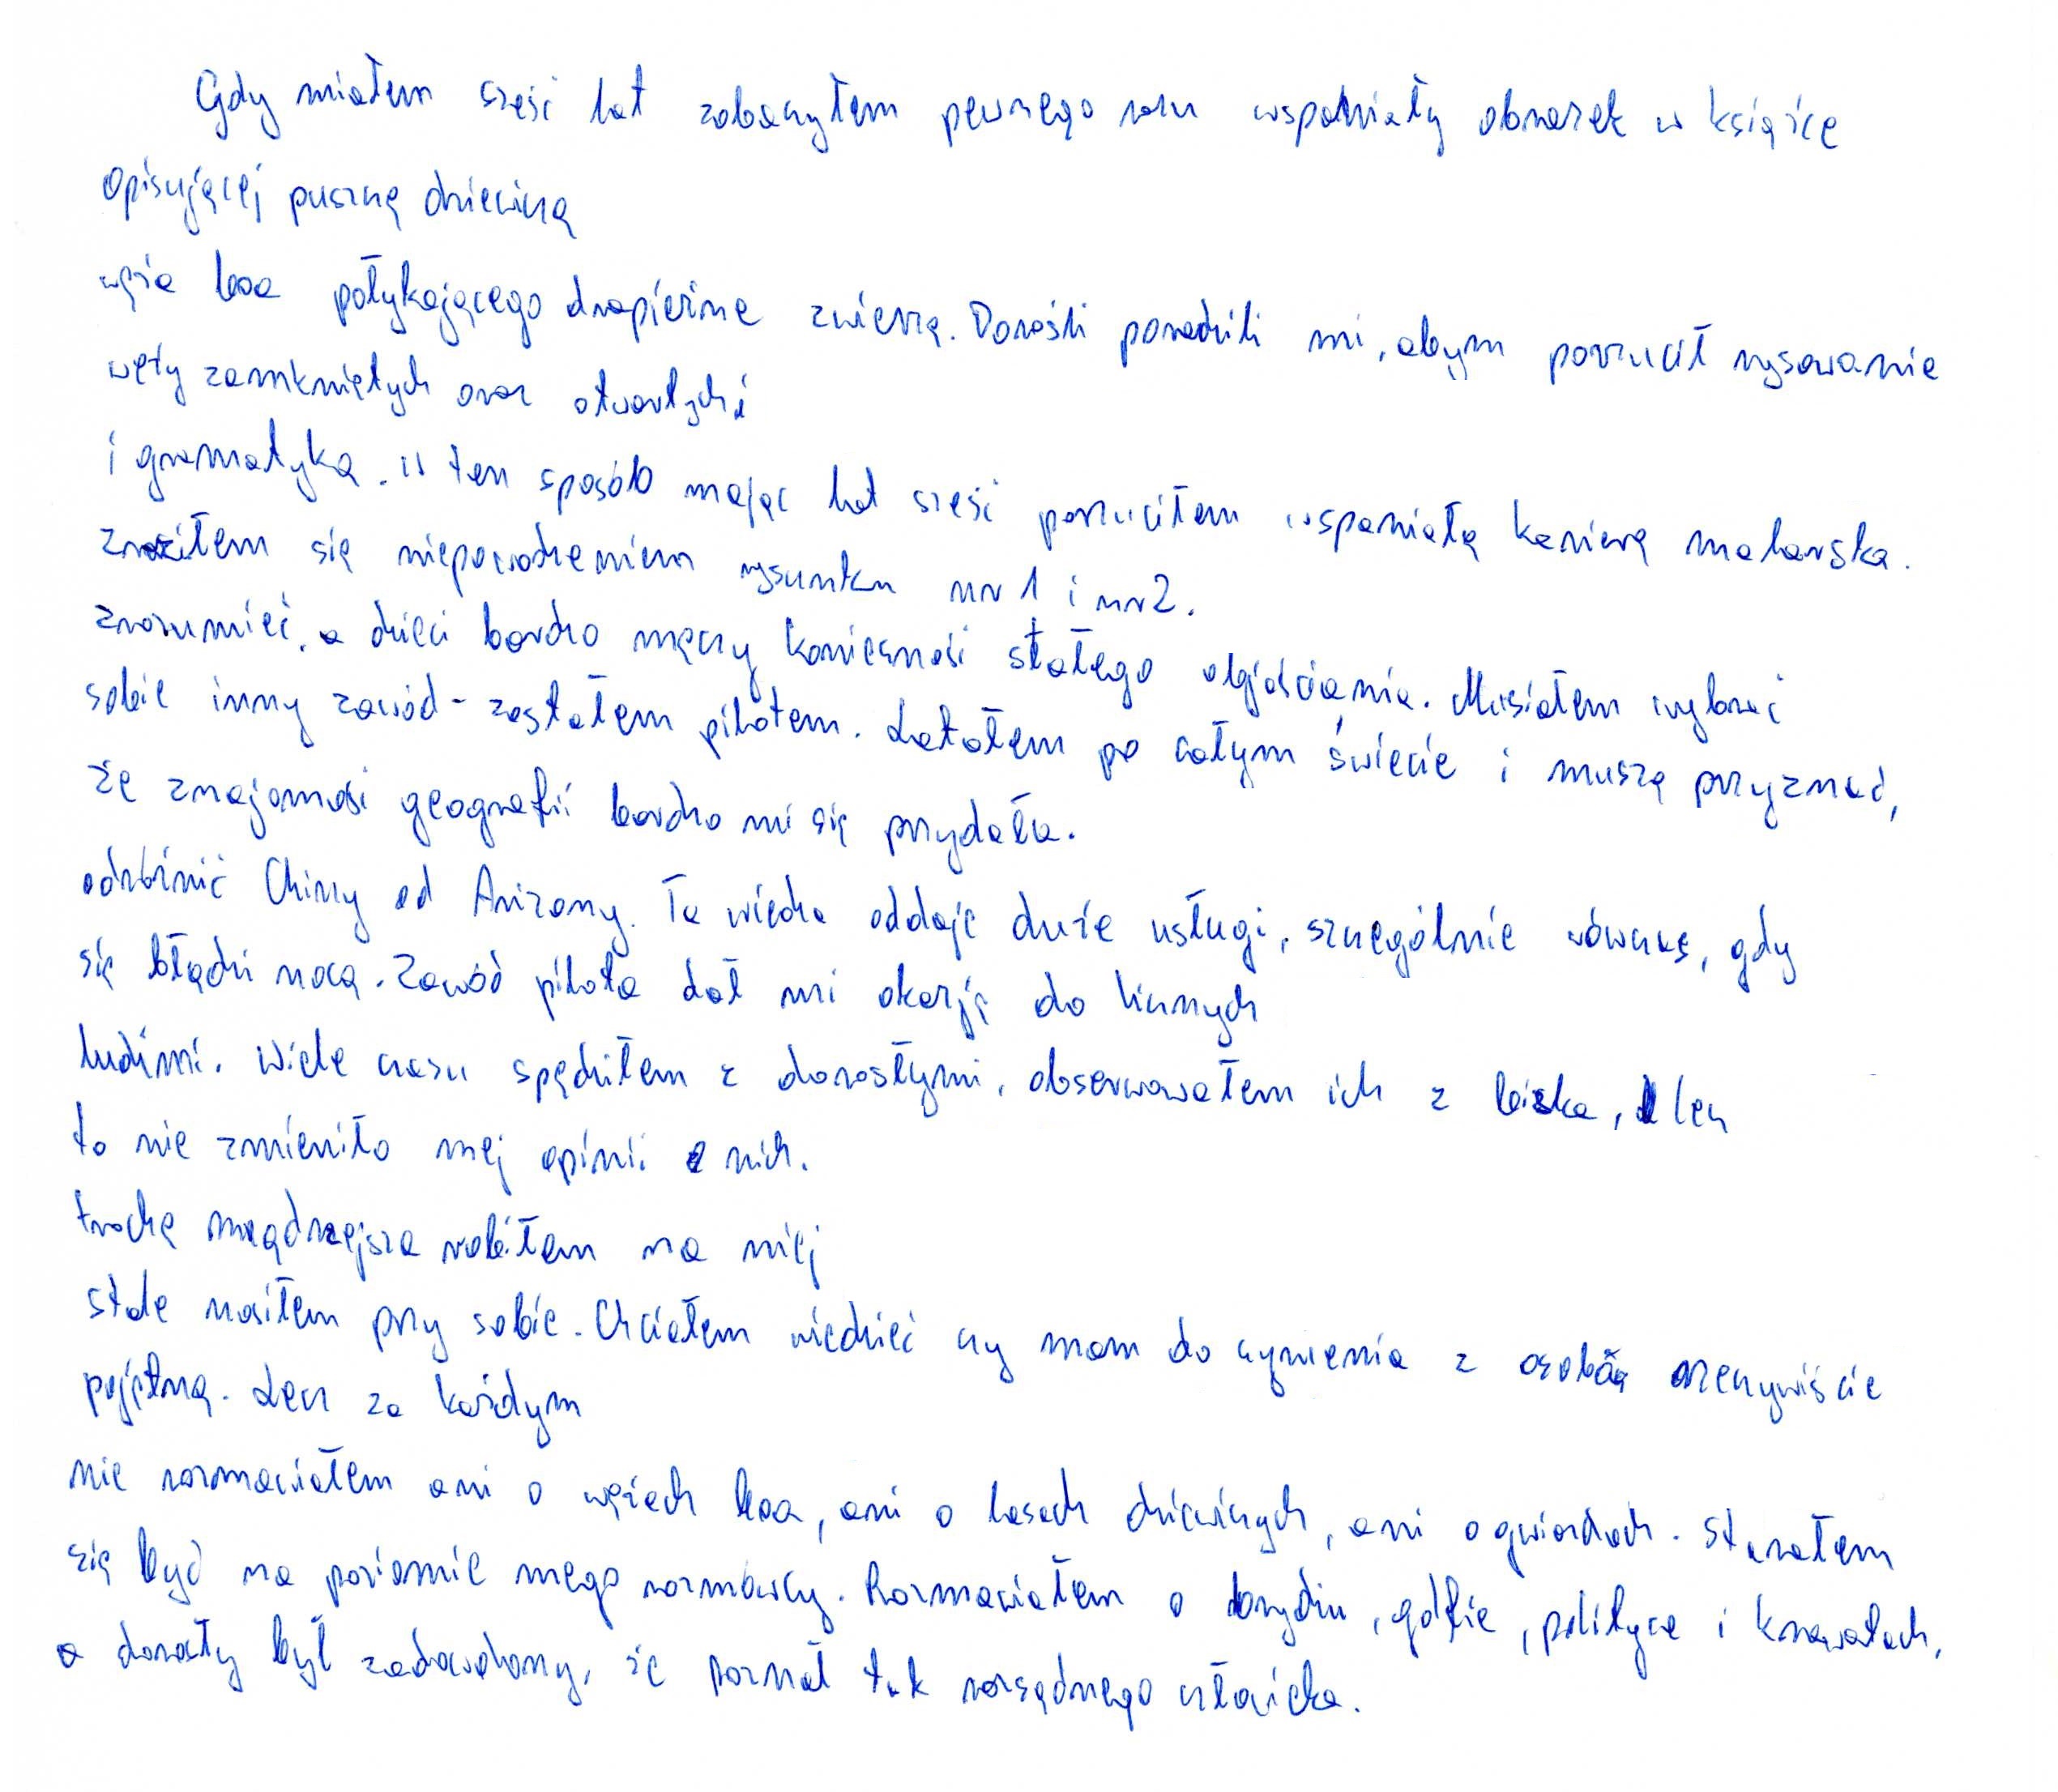 Gdy miałem sześć lat zobaczyłem pewnego razu wspaniały obrazek w książce
opisującej puszczę dziewiczą
węża boa połykającego drapieżne zwierzę. Dorośli poradzili mi, abym porzucił rysowanie
węży zamkniętych oraz otwartych i
i gramatyką. W ten sposób mając lat sześć porzuciłem wspaniałą karierę malarską.
zraziłem się niepowodzeniem rysunku nr 1 i nr 2.
zrozumieć, a dzieci bardzo męczy konieczność stałego objaśniania. Musiałem wybrać
sobie inny zawód - zostałem pilotem. Latałem po całym świecie i muszę przyznać,
że znajomość geografii bardzo mi się przydała.
odróżnić Chiny od Arizony. Ta wiedza oddaje duże usługi, szczególnie wówczas, gdy
się błądzi nocą. Zawód pilota dał mi okazję do licznych
ludźmi. Wiele czasu spędziłem z dorosłymi, obserwowałem ich z bliska, lecz
to nie zmieniło mej opinii o nich.
trochę mądrzejsza robiłem na niej
stale nosiłem przy sobie. Chciałem wiedzieć czy mam do czynienia z osobą rzeczywiście
pojętną. Lecz za każdym
nie rozmawiałem ani o wężach boa, ani o lasach dziewiczych, ani o gwiazdach. Starałem
się być na poziomie mego rozmówcy. Rozmawiałem o brydżu, golfie, polityce i krawatach,
a dorosły był zadowolony, że poznał tak rozsądnego człowieka.